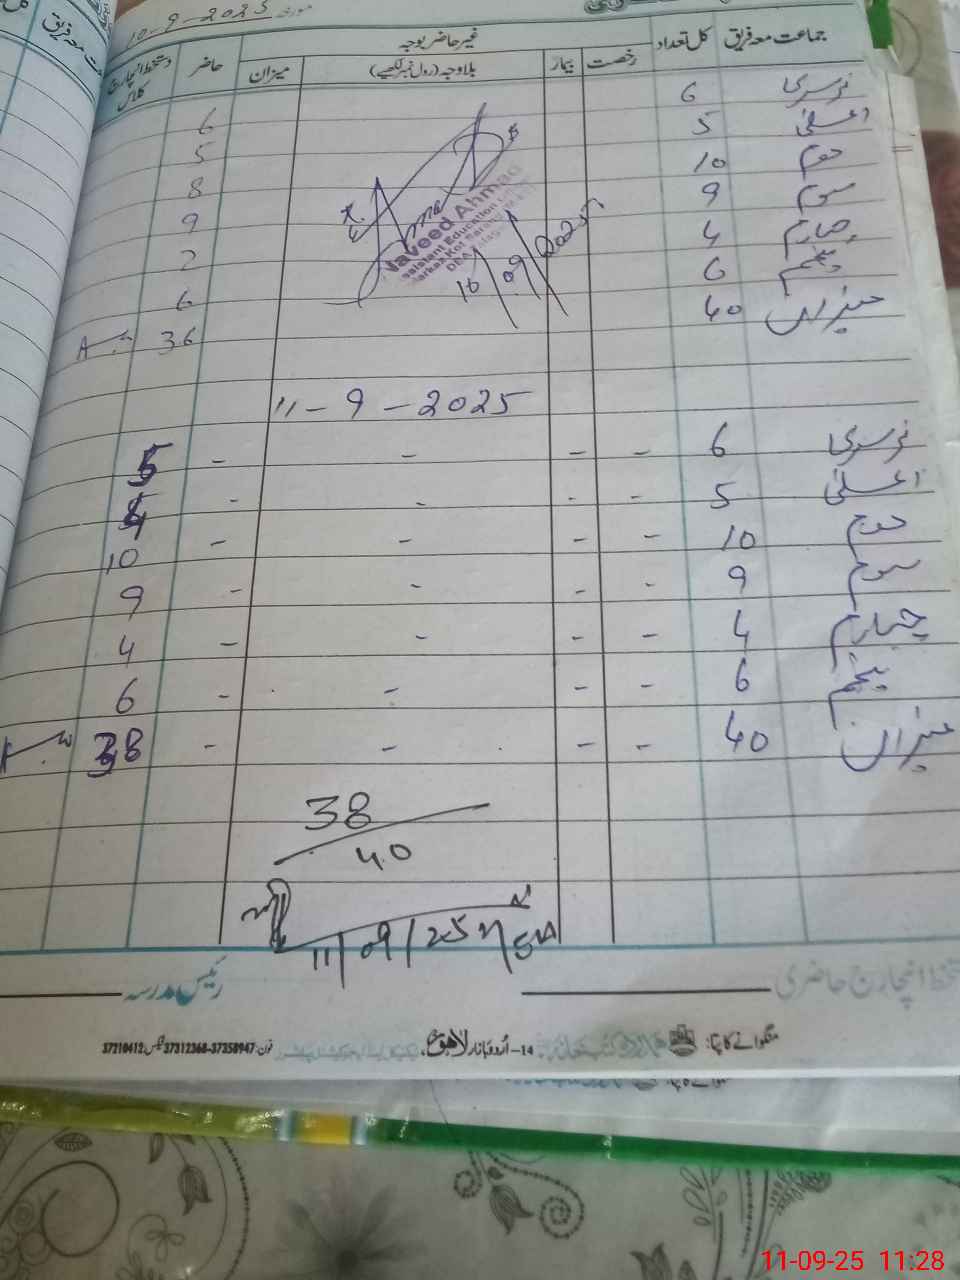 مورخہ 10-9-2025
جماعت معہ فریق کل تعداد غیر حاضر بوجہ حاضر دستخط انچارج کلاس
رخصت بیمار بلاوجہ (رول نمبر لکھیے) میزان
نرسری 6 6
اعلیٰ 5 5
دوم 10 8
سوم 9 9
چہارم 4 2
پنجم 6 6
میزان 40 36
Naveed Ahmad
Assistant Education
Markaz Kot
10/09/2025
11-9-2025
نرسری 6 - - - - 5
اعلیٰ 5 - - - - 4
دوم 10 - - - - 10
سوم 9 - - - - 9
چہارم 4 - - - - 4
پنجم 6 - - - - 6
میزان 40 - - - - 38
38
40
11/09/25
دستخط انچارج حاضری رئیس مدرسہ
منگوانے کا پتا: 14-اُردو بازار لاہور، فون: 37358947-37312368 فیکس: 37210412
11-09-25 11:28